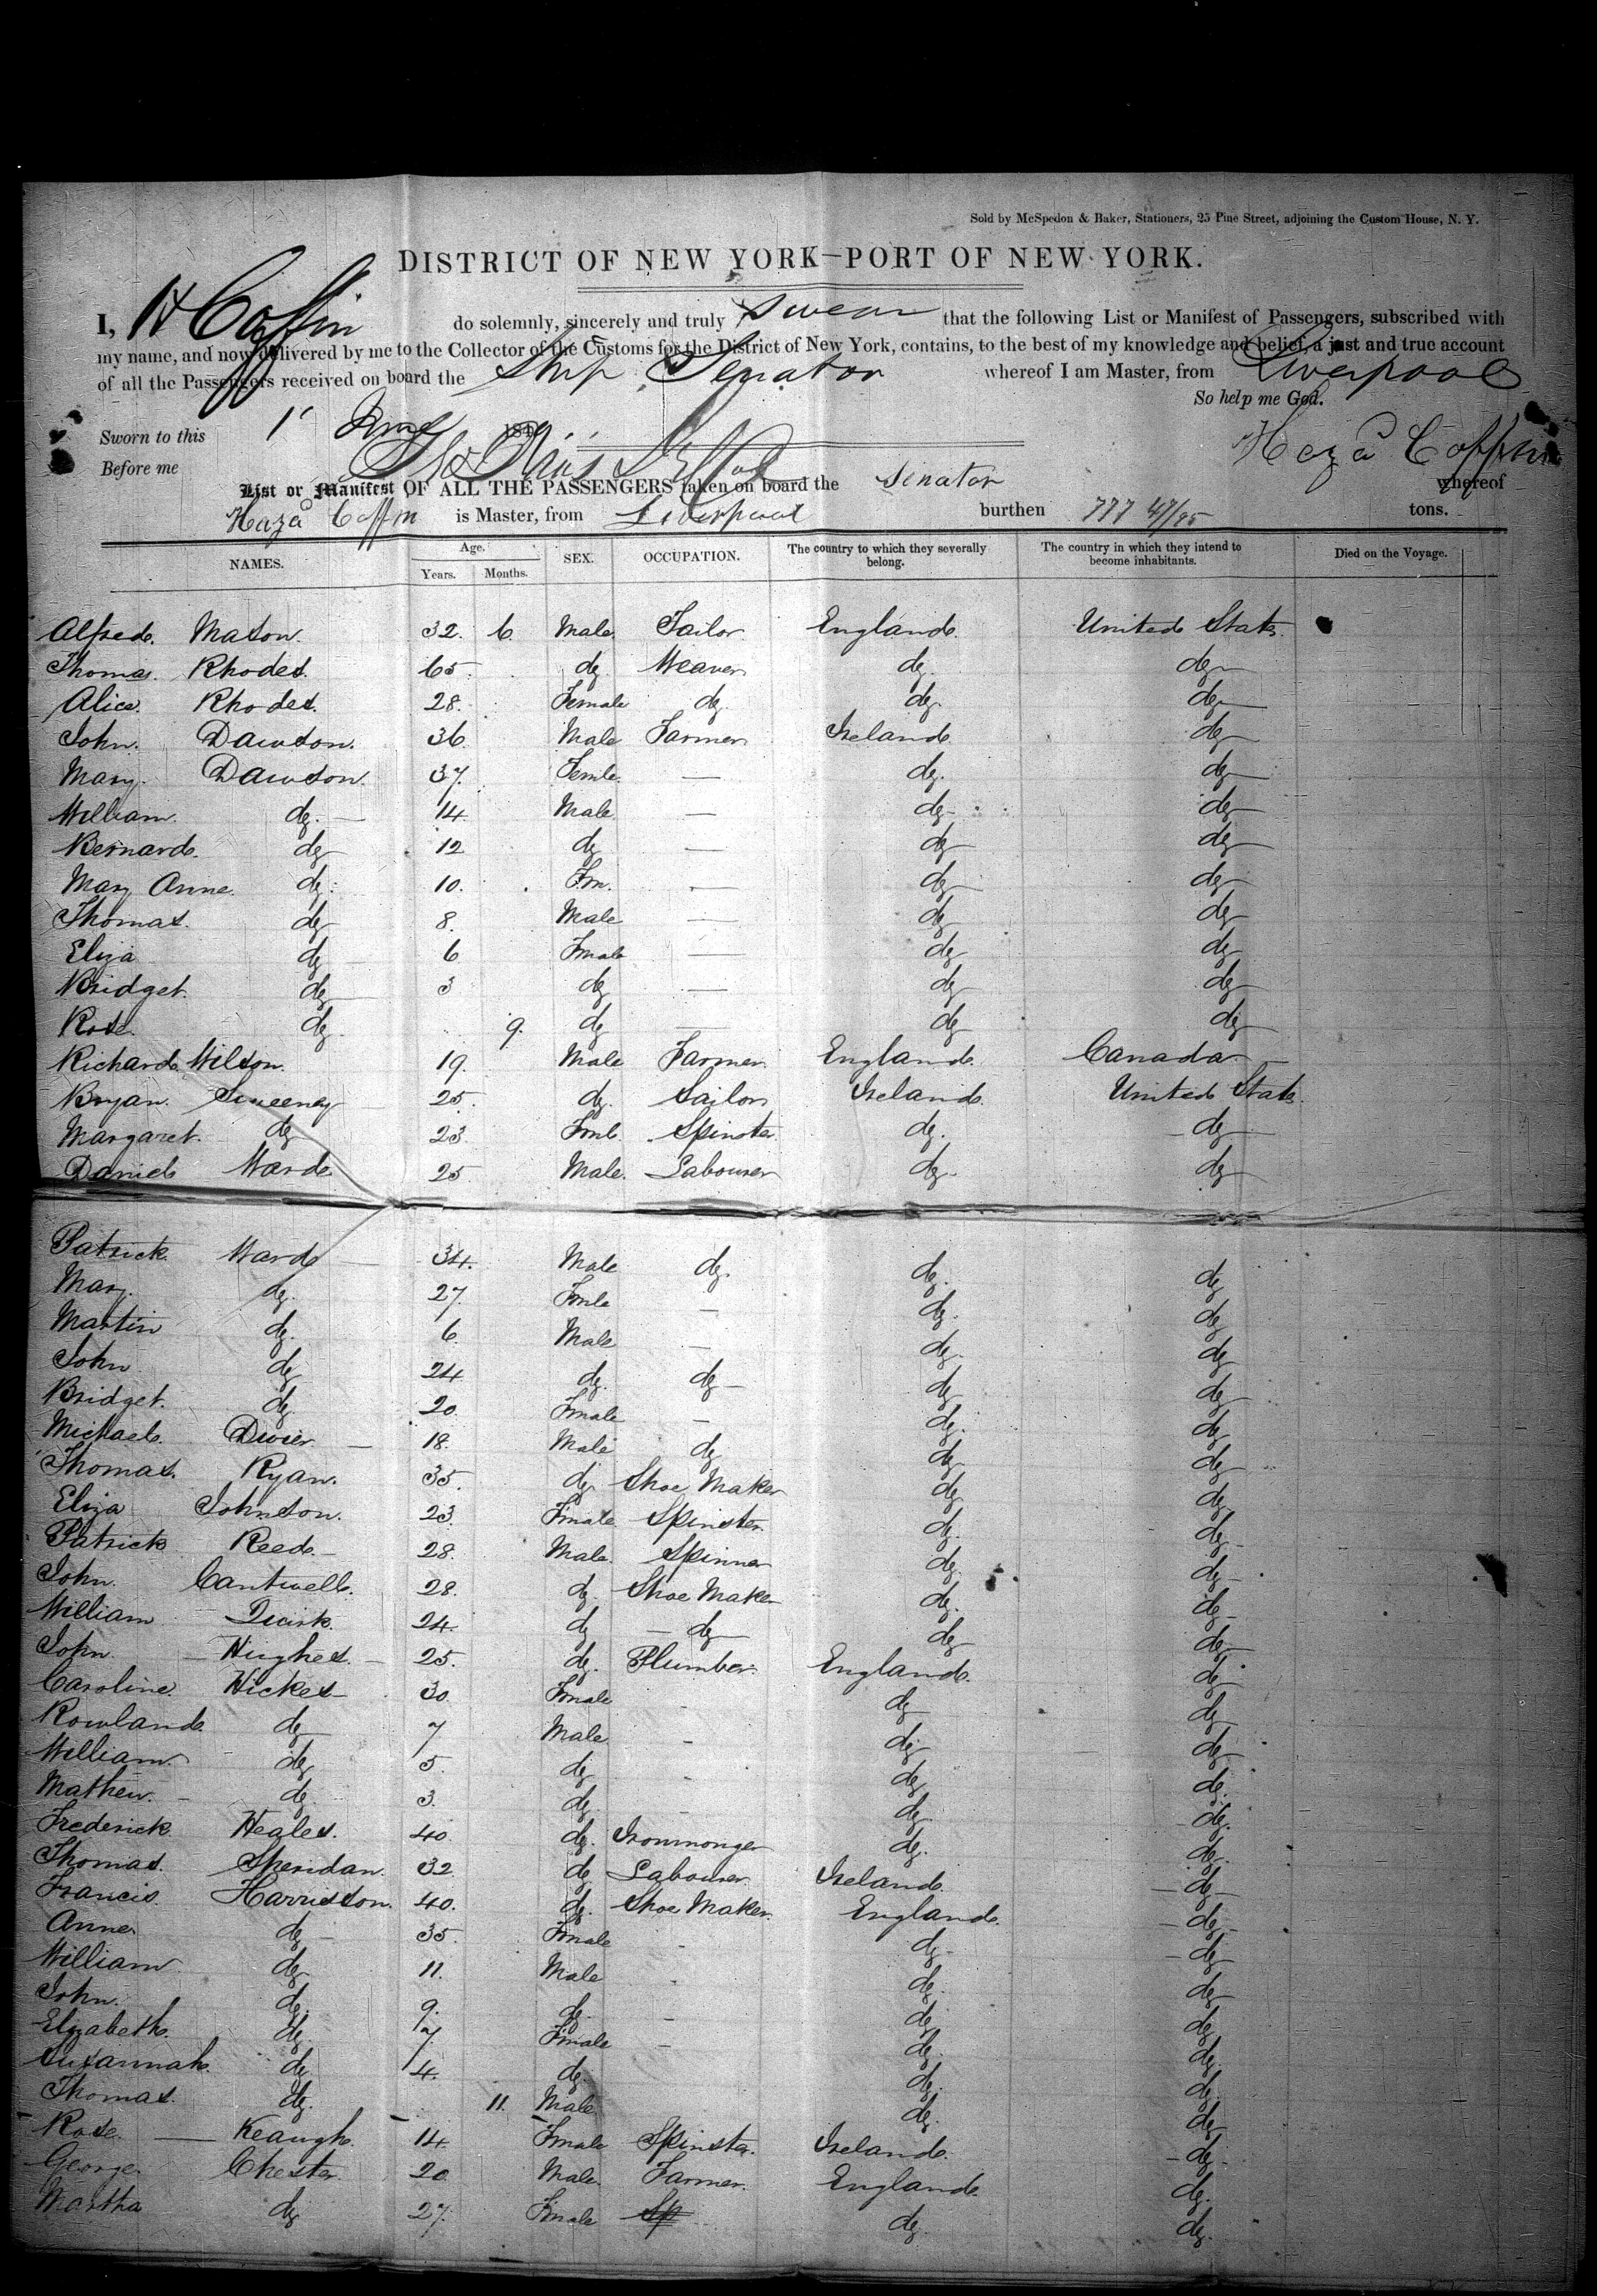 Sold by McSpedon & Baker, Stationers, 25 Pine Street, adjoining the Custom House, N. Y.
DISTRICT OF NEW YORK—PORT OF NEW YORK.
I, H Coffin do solemnly, sincerely and truly swear that the following List or Manifest of Passengers, subscribed with
my name, and now delivered by me to the Collector of the Customs for the District of New York, contains, to the best of my knowledge and belief, a just and true account
of all the Passengers received on board the Ship Senator whereof I am Master, from Liverpool
So help me God.
Sworn to this 1 June 184
Before me Heza Coffin
List or Manifest OF ALL THE PASSENGERS taken on board the Senator whereof
Heza Coffin is Master, from Liverpool burthen 777 47/95 tons.
NAMES. Age. Years. Months. SEX. OCCUPATION. The country to which they severally belong. The country in which they intend to become inhabitants. Died on the Voyage.
Alfred. Mason. 32. 6 Male. Tailor. England. United Stats.
Thomas. Rhodes. 65. do Weaver do. do
Alice. Rhodes. 28. Female do. do. do
John. Dawson. 36 Male Farmer Ireland. do
Mary. Dawson. 37. Femle. — do. do
William. do. 14. Male — do do
Bernard. do 12 do — do do
Mary Anne. do. 10. Fm. — do do
Thomas. do 8. Male — do do
Eliza do 6 Fmale — do do
Bridget. do 3 do — do do
Rose. do. 9. do — do do
Richard Wilson. 19. Male Farmer. England. Canada
Bryan. Sweeney 25. do. Sailor Ireland. United Stats.
Margaret. do 23 Fmle. Spinster do. do
Daniel Ward 25 Male. Labourer do do
Patrick. Ward 34. Male do. do. do
Mary. do. 27. Fmle — do. do
Martin do. 6. Male — do. do
John do 24 do. do do do
Bridget. do. 20. Fmale — do. do
Michael. Dwier 18. Male do do do
Thomas. Ryan. 35. do Shoe Maker do do
Eliza Johnson. 23. Fmale Spinster. do. do
Patrick Reed. 28. Male. Spinner do. do
John. Cantwell. 28. do. Shoe Maker do. do
William Quirk. 24. do do do do
John. Hughes. 25. do. Plumber. England. do
Caroline. Hickes 30. Fmale do do
Rowland. do 7 Male - do do
William. do 5. do - do do.
Mathew. do. 3. do - do do.
Frederick Heales. 40. do. Ironmonger do. do.
Thomas. Sheridan. 32 do Labourer Ireland. do
Francis. Harrisson. 40. do. Shoe Maker. England. do
Anne do 35. Fmale - do do
William do 11. Male - do. do
John. do. 9. do. - do do
Elizabeth. do. 7. Fmale - do. do
Susannah. do 4. do. do. do.
Thomas. do. 11. Male do. do
Rose. Keaugh. 14. Fmale Spinster. Ireland. do.
George Chester. 20. Male. Farmer. England. do.
Martha do 27. Fmale Sp do. do.